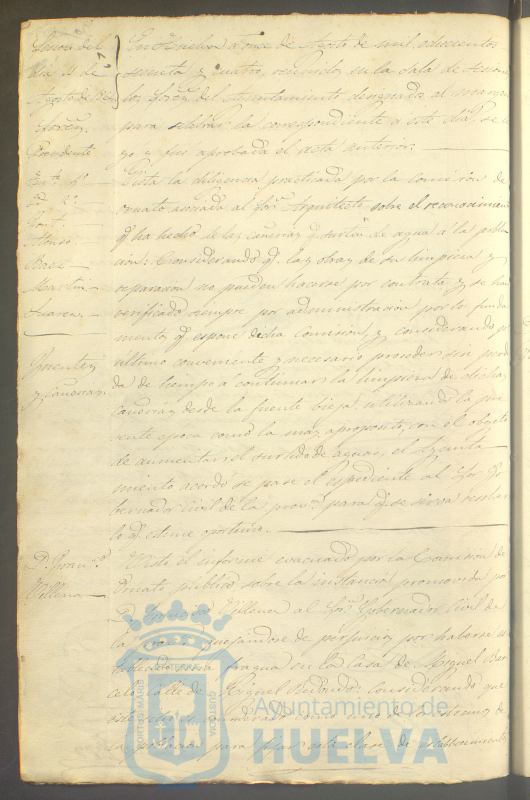 Sesion del
dia 11 de
Agosto de 1864
Señores
Presidente
Alonso
Baez
Martin
Suarez
Fuentes
y cañerias
D. Franco
Villena
En Huelva a once de Agosto de mil ochocientos
sesenta y cuatro, reunidos en la Sala de sesiones
los Señores del Ayuntamiento designados al margen
para celebrar la correspondiente a este dia, se le
yo y fue aprobada el acta anterior.
Vista la diligencia practicada por la comision de
ornato asociada al Sor. Arquitecto sobre el reconocimiento
q. ha hecho de las cañerias q. surten de agua a la pobla
cion: Considerando q. las obras de su limpieza y
reparacion no pueden hacerse por contrata y se han
verificado siempre por administracion por los funda
mentos q. espone dicha Comision, y considerando por
ultimo conveniente y necesario proceder sin perdi
da de tiempo a continuar la limpieza de dichas
cañerias desde la fuente vieja utilizando la pre
sente epoca como la mas aproposito, con el objeto
de aumentar el surtido de aguas, el Ayunta
miento acordo se pase el espediente al Sor. Go
bernador Civil de la prova. para q. se sirva resolver
lo q. estime oportuno.
Visto el informe evacuado por la Comision de
Ornato publico sobre la instancia promovida por
D. Francisco Villena al Sor. Gobernador Civil de
la prova. quejandose de perjuicios por haberse es
tablecido una fragua en la casa de Miguel Bar
celo calle de Miguel Redondo: Considerando que
este sitio es considerado como uno de los estremos de
la poblacion para fijar esta clase de establecimientos
PORTUS MARIS
ET TERRÆ
CUSTODIA
Ayuntamiento de
HUELVA